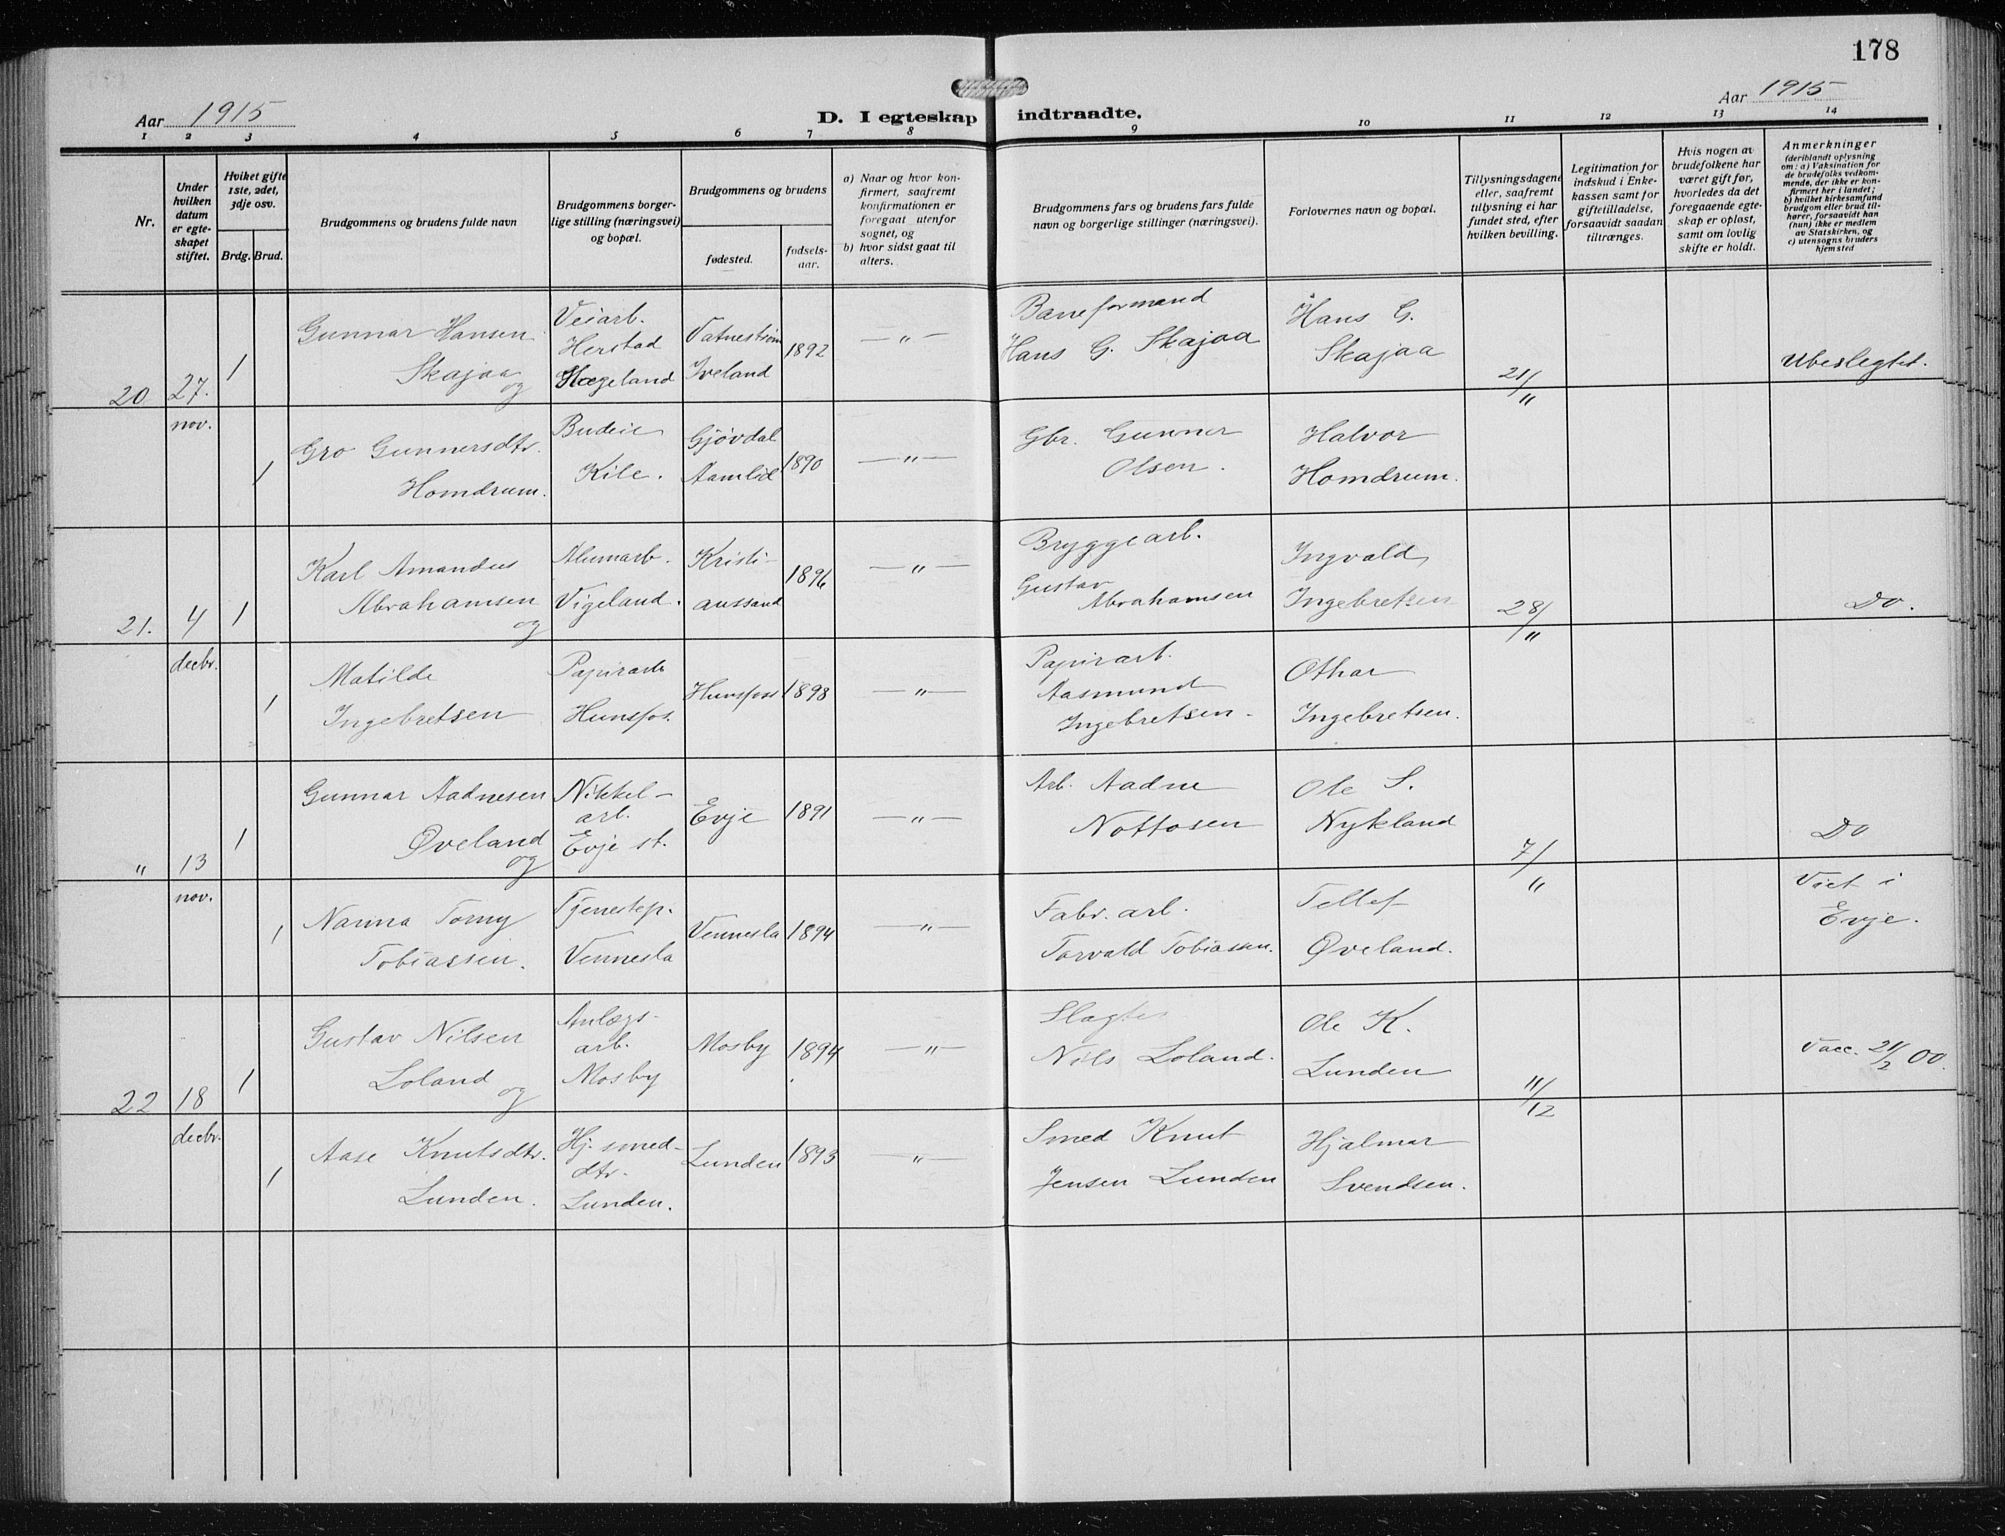 178
Aar 1915
D. I egteskap indtraadte.
Aar 1915
1 2 3 4 5 6 7 8 9 10 11 12 13 14
Nr.
Under hvilken datum er egteskapet stiftet.
Hviket gifte 1ste, 2det, 3dje osv.
Brdg. Brud.
Brudgommens og brudens fulde navn
Brudgommens borgerlige stilling (næringsvei) og bopæl.
Brudgommens og brudens
fødested.
fødselsaar.
a) Naar og hvor konfirmert, saafremt konfirmationen er foregaat utenfor sognet, og
b) hvor sidst gaat til alters.
Brudgommens fars og brudens fars fulde navn og borgerlige stillinger (næringsvei).
Forlovernes navn og bopæl.
Tillysningsdagene eller, saafremt tillysning ei har fundet sted, efter hvilken bevilling.
Legitimation for indskud i Enkekassen samt for giftetilladelse, forsaavidt saadan tiltrænges.
Hvis nogen av brudefolkene har været gift før, hvorledes da det foregaaende egteskap er opløst, samt om lovlig skifte er holdt.
Anmerkninger
(deriblandt oplysning om: a) Vaksination for de brudefolks vedkommende, der ikke er konfirmert her i landet; b) hvilket kirkesamfund brudgom eller brud tilhører, forsaavidt han (hun) ikke er medlem av Statskirken, og c) utensogns bruders hjemsted
20. 27. nov. 1
Gunnar Hansen
Skajaa og
Veiarb.
Herstad
Hægeland
Vatnestrøm
Iveland
1892
—"—
Baneformand
Hans G. Skajaa
Hans G.
Skajaa
21/"
Ubeslegtet.
1
Gro Gunnersdtr.
Homdrum.
Budeie
Kile.
Gjövdal
Aamlid
1890
—"—
Gbr. Gunner
Olsen.
Halvor
Homdrum.
21. 4 decbr. 1
Karl Amandus
Abrahamsen
og
Alumarb.
Vigeland.
Kristi-
anssand
1896
—"—
Bryggearb.
Gustav
Abrahamsen
Ingvald
Ingebretsen
28/"
Do.
1
Matilde
Ingebretsen
Papirarb
Hunsfos.
Hunsfoss
1898
—"—
Papirarb.
Aasmund
Ingebretsen.
Othar
Ingebretsen.
" 13 nov. 1
Gunnar Aadnesen
Øveland
og
Nikkel-
arb.
Evje st.
Evje
1891
—"—
Arb. Aadne
Nottosen
Ole S.
Nykland
7/"
Do
1
Nanna Tomy
Tobiassen.
Tjenestep.
Vennesla
Vennesla
1894
—"—
Fabr. arb.
Torvald Tobiassen.
Tellef
Øveland.
Viet i
Evje.
22 18 decbr. 1
Gustav Nilsen
Loland og
Anlægs-
arb.
Mosby
Mosby
1894
—"—
Slagter
Nils Loland.
Ole K.
Lunden
11/12
Vacc. 21/2 00.
1
Aase Knutsdtr.
Lunden.
Hj. smed-
dtr.
Lunden.
Lunden
1893
—"—
Smed Knut
Jensen Lunden
Hjalmar
Svendsen.